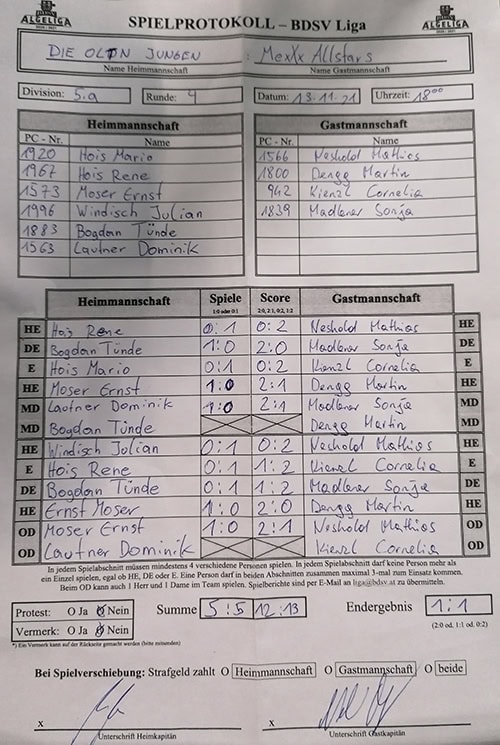 ALGELIGA SPIELPROTOKOLL – BDSV Liga ALGELIGA
DIE OLTN JUNGEN : MexXx Allstars
Name Heimmannschaft Name Gastmannschaft
Division: 5.a Runde: 4 Datum: 13.11.21 Uhrzeit: 18⁰⁰
Heimmannschaft Gastmannschaft
PC - Nr. Name PC - Nr. Name
1920 Hois Mario 1566 Neshold Mathias
1967 Hois Rene 1800 Dengg Martin
1573 Moser Ernst 942 Kienzl Cornelia
1996 Windisch Julian 1839 Madlener Sonja
1883 Bogdan Tünde
1563 Lautner Dominik
Heimmannschaft Spiele Score Gastmannschaft
1:0 oder 0:1 2:0, 2:1, 0:2, 1:2
HE Hois Rene 0:1 0:2 Neshold Mathias HE
DE Bogdan Tünde 1:0 2:0 Madlener Sonja DE
E Hois Mario 0:1 0:2 Kienzl Cornelia E
HE Moser Ernst 1:0 2:1 Dengg Martin HE
MD Lautner Dominik 1:0 2:1 Madlener Sonja MD
MD Bogdan Tünde Dengg Martin MD
HE Windisch Julian 0:1 0:2 Neshold Mathias HE
E Hois Rene 0:1 1:2 Kienzl Cornelia E
DE Bogdan Tünde 0:1 1:2 Madlener Sonja DE
HE Ernst Moser 1:0 2:0 Dengg Martin HE
OD Moser Ernst 1:0 2:1 Neshold Mathias OD
OD Lautner Dominik Kienzl Cornelia OD
In jedem Spielabschnitt müssen mindestens 4 verschiedene Personen spielen. In jedem Spielabschnitt darf keine Person mehr als
ein Einzel spielen, egal ob HE, DE oder E. Eine Person darf in beiden Abschnitten zusammen maximal 3-mal zum Einsatz kommen.
Beim OD kann auch 1 Herr und 1 Dame im Team spielen. Spielberichte sind per E-Mail an liga@bdsv.at zu übermitteln.
Protest: O Ja O Nein Summe 5:5 12:13 Endergebnis 1:1
Vermerk: O Ja O Nein (2:0 od. 1:1 od. 0:2)
*) Ein Vermerk kann auf der Rückseite gemacht werden (bitte ankreuzen)
Bei Spielverschiebung: Strafgeld zahlt O Heimmannschaft O Gastmannschaft O beide
x x
Unterschrift Heimkapitän Unterschrift Gastkapitän